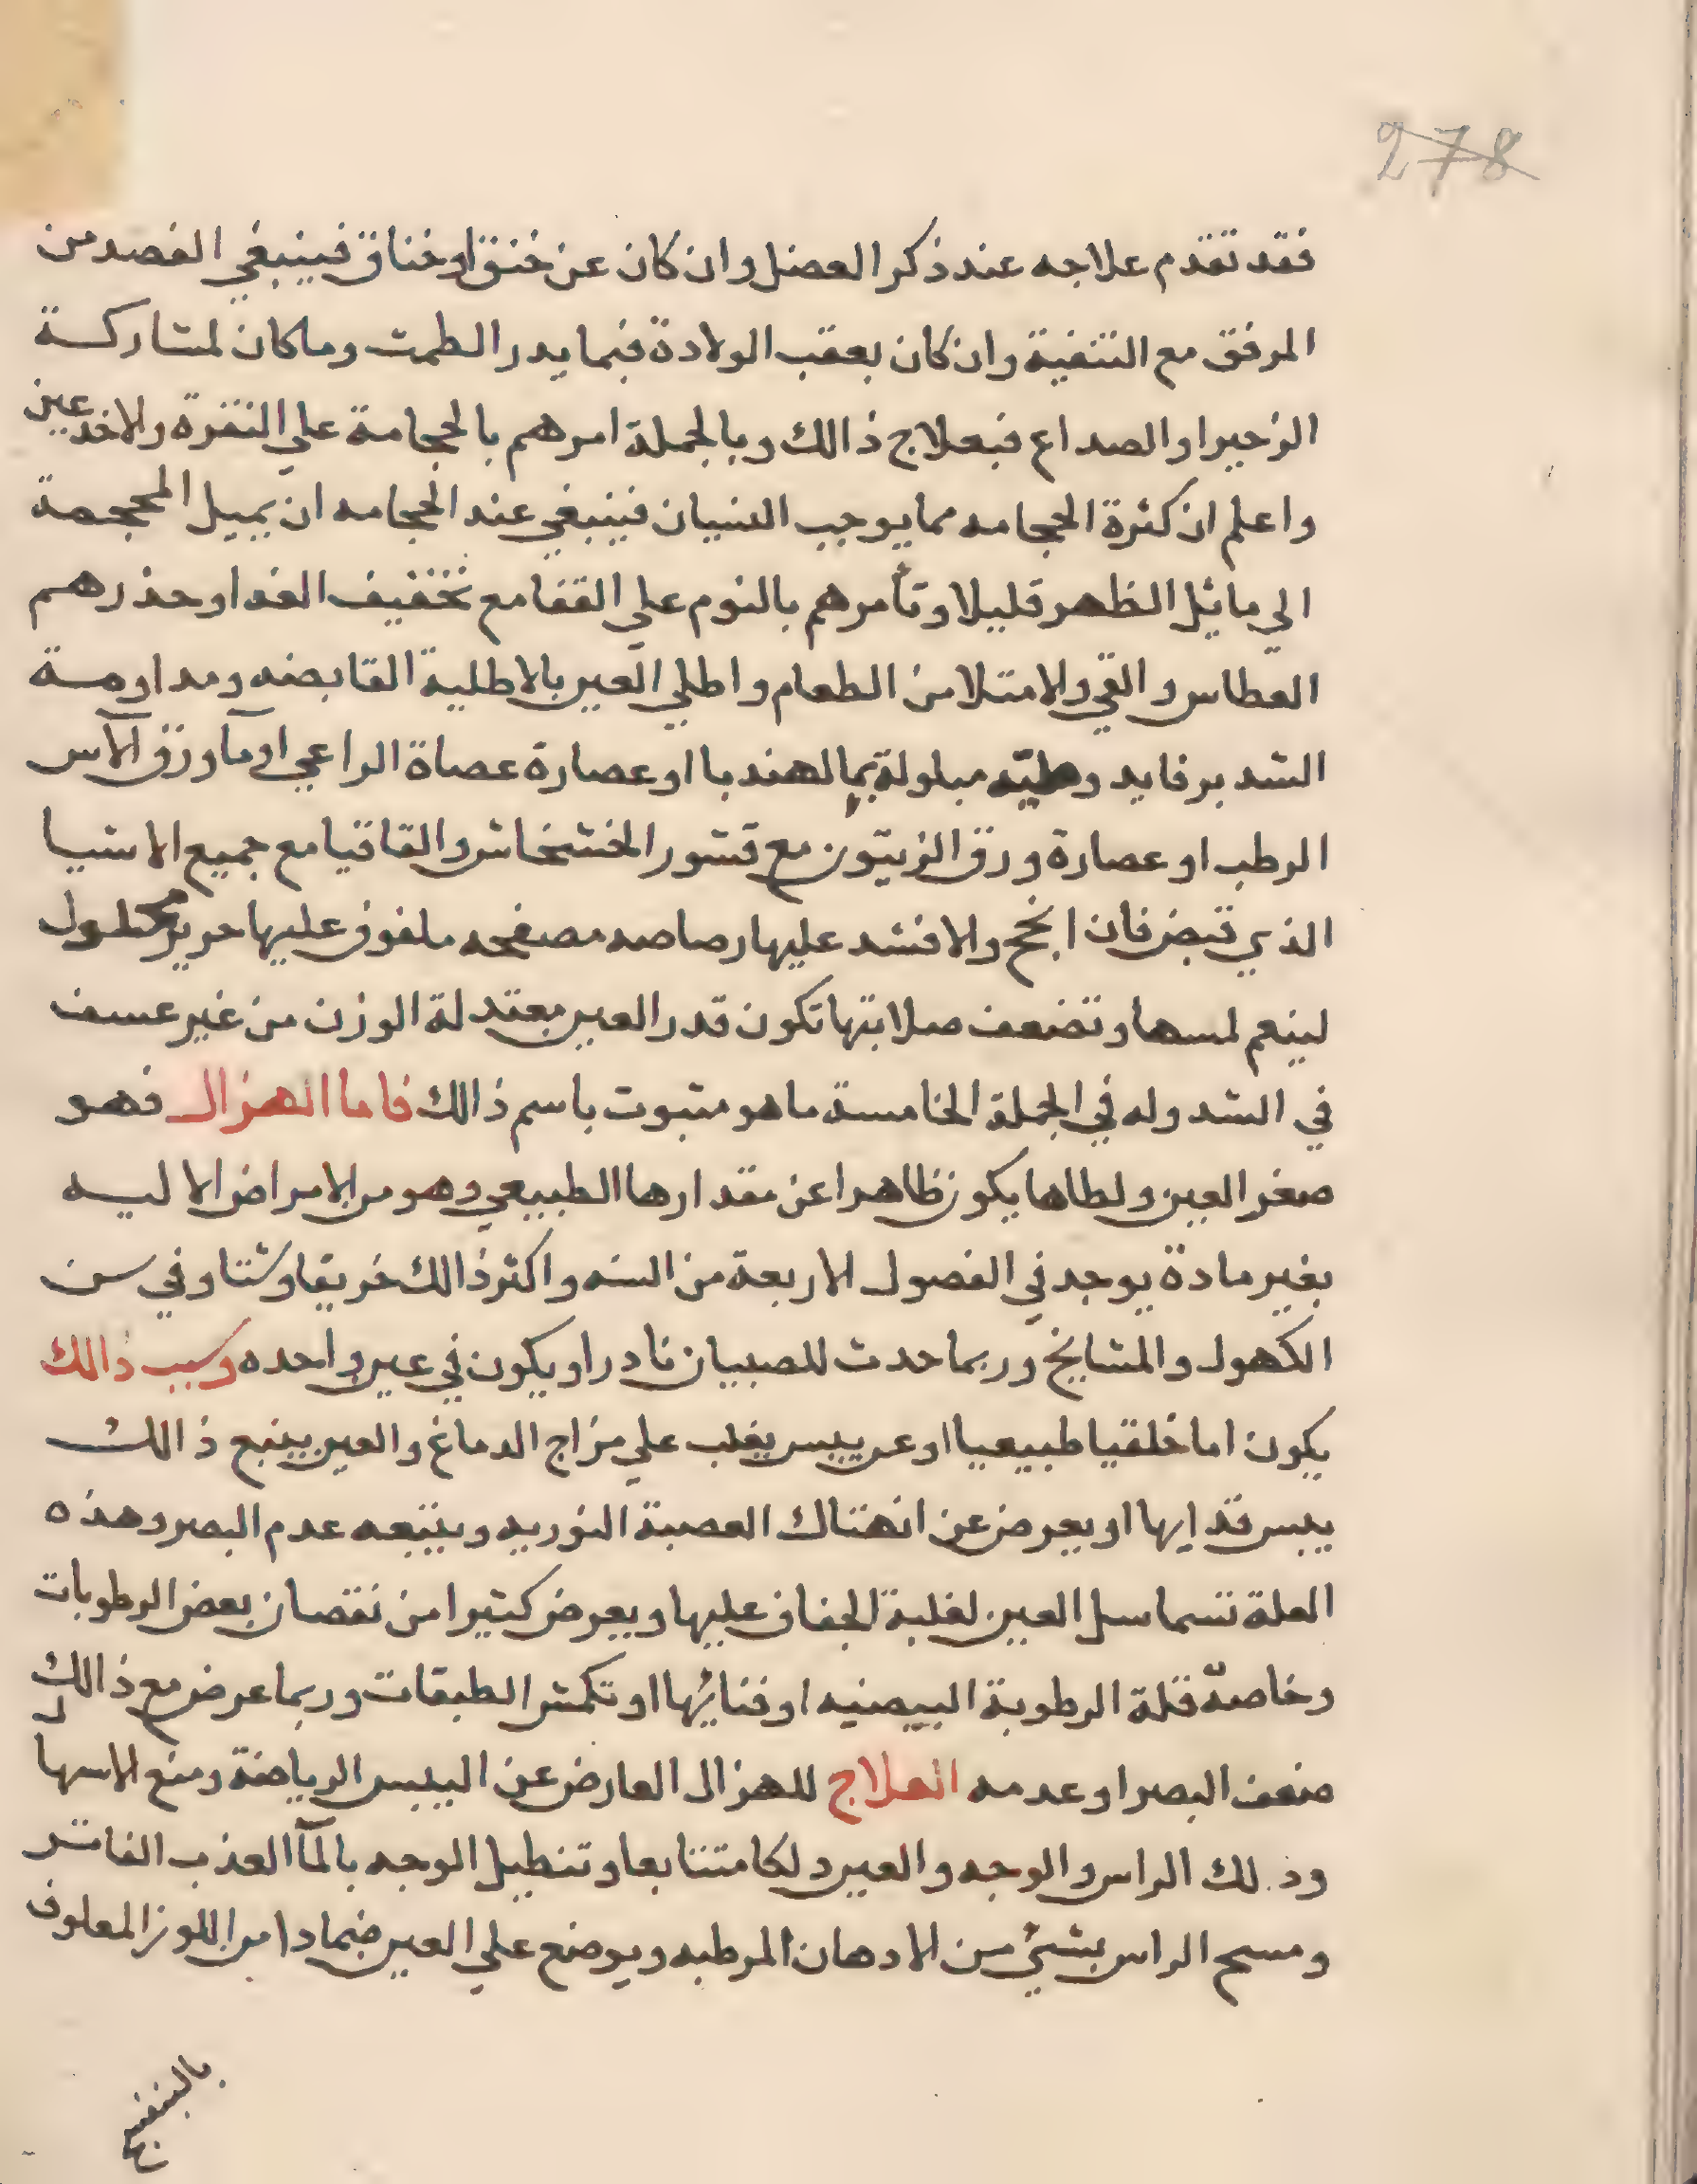 278
فقد تقدم علاجه عند ذكر العضل وان كان عن خنق او خناق فينبغي الفصد من
المرفق مع التنقية وان كان بعقب الولادة فبما يدر الطمت وما كان لمشاركة
الزحير او الصداع فبعلاج ذالك وبالجملة امرهم بالحجامة علي النقرة ولاخدعين
واعلم ان كثرة الحجامه مما يوجب النسيان فينبغي عند الحجامه ان يميل المحجمة
الي ما يلي الظهر قليلا وتأمرهم بالنوم علي القفا مع تخفيف الغدا وحذرهم
العطاس والقي والامتلا من الطعام واطلي العين بالاطلية القابضه ومداومة
الشد برفايد وطيه مبلولة بما الهندبا او عصارة عصاة الراعي او مآ ورق الآس
الرطب او عصارة ورق الزيتون مع قشور الخشخاش والقاقيا مع جميع الاشيا
الذي تقبض فان انجح والا فشد عليها رصاصه مصفحه ملفوف عليها حرير محلول
لينعم لمسها وتضعف صلابتها تكون قدر العين معتدلة الوزن من غير عسف
في الشد وله في الجملة الخامسة ما هو مثبوت باسم ذالك فاما الهزال فهو
صغر العين ولطاها يكون ظاهرا عن مقدارها الطبيعي وهو من الامراض الاليه
بغير مادة يوجد في الفصول الاربعة من السنه واكثر ذالك خريفا وشتا وفي سن
الكهول والمشايخ وربما حدث للصبيان نادرا ويكون في عين واحده وسبب ذالك
يكون اما خلقيا طبيعيا او عن يبس يغلب علي مزاج الدماغ والعين يتبع ذالك
يبس قد ايها او يعرض عن انهتاك العصبة النوريه ويتبعه عدم البصر وهذه
العلة تسما سل العين لغلبة الجفاف عليها ويعرض كثيرا من نقصان بعض الرطوبات
وخاصة قلة الرطوبة البيضيه او فنائها او تكمش الطبقات وربما عرض مع ذالك
ضعف البصر او عدمه العلاج للهزال العارض عن اليبس الرياضة ومنع الاسهال
ودلك الراس والوجه والعين دلكا متتابعا وتنطيل الوجه بالمآ العذب الفاتر
ومسح الراس بشئ من الادهان المرطبه ويوضع علي العين ضمادا من اللوز المعلوف
بالبنفسج